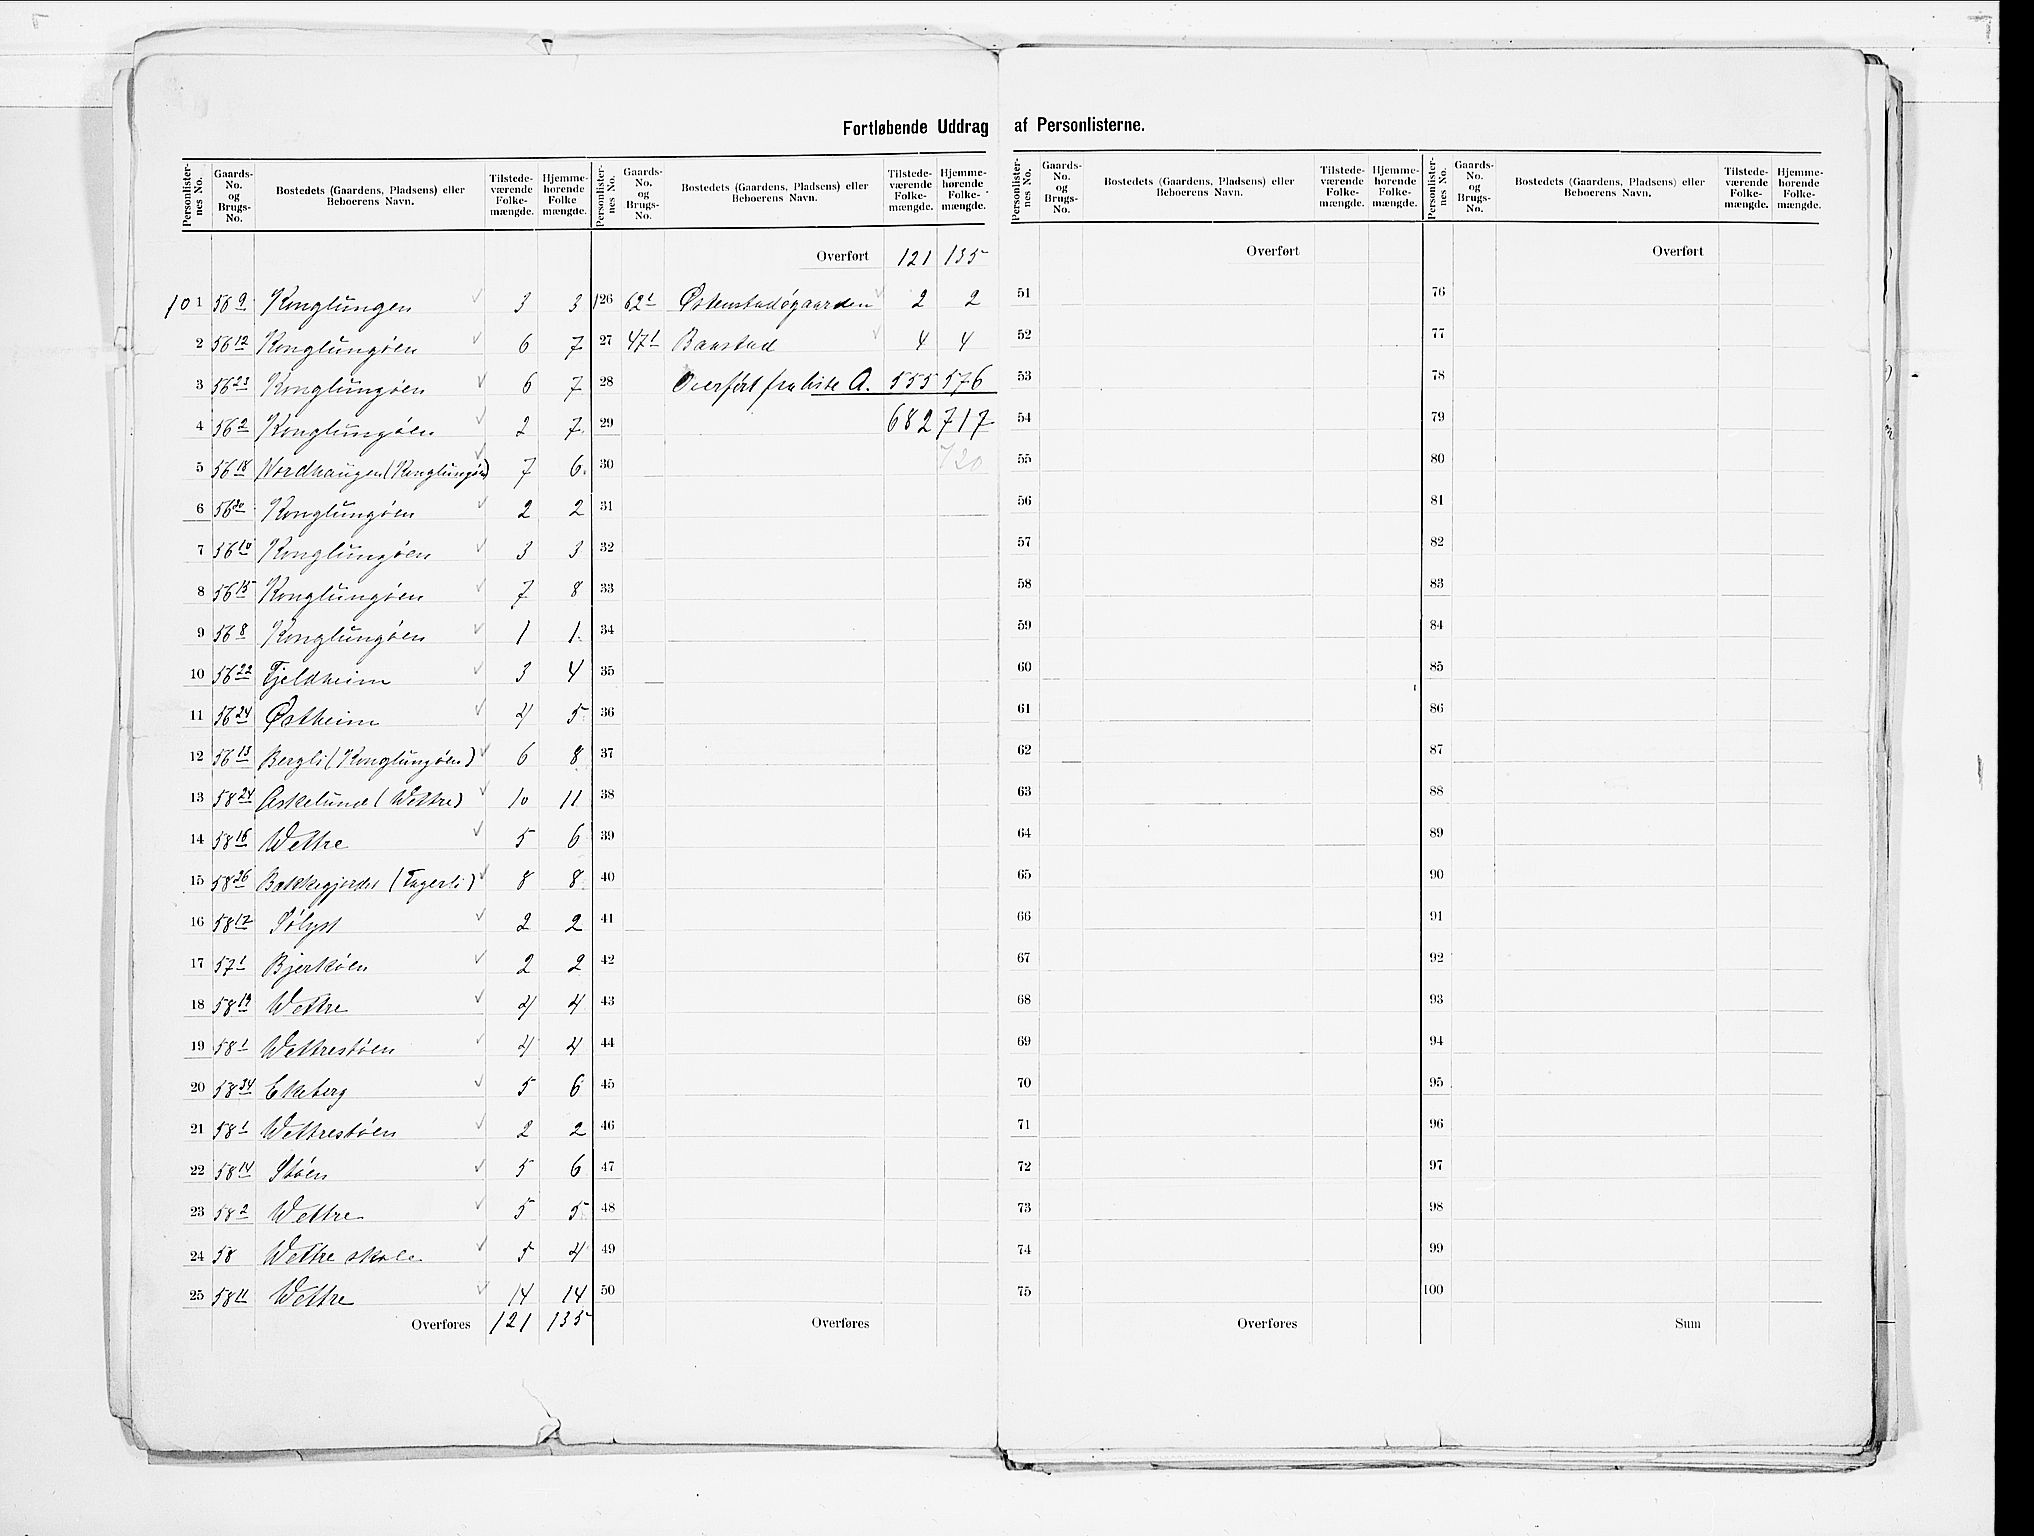 Fortløbende Uddrag af Personlisterne.
Personlister- nes No. Gaards- No. og Brugs- No. Bostedets (Gaardens, Pladsens) eller Beboerens Navn. Tilstede- værende Folke- mængde. Hjemme- hørende Folke mængde.
101 56 9 Konglungen 3 3
2 56 12 Konglungøen 6 7
3 56 23 Konglungøen 6 7
4 56 2 Konglungøen 2 7
5 56 18 Nordhaugen (Konglungøen) 7 6
6 56 20 Konglungøen 2 2
7 56 10 Konglungøen 3 3
8 56 15 Konglungøen 7 8
9 56 8 Konglungøen 1 1
10 56 22 Fjeldheim 3 4
11 56 24 Østheim 4 5
12 56 13 Bergli (Konglungøen) 6 8
13 58 24 Askelund (Wettre) 10 11
14 58 16 Wettre 5 6
15 58 26 Bakkegjordet (Fagerli) 8 8
16 58 17 Sølyst 2 2
17 57 1 Bjerkøen 2 2
18 58 19 Wettre 4 4
19 58 1 Wettrestøen 4 4
20 58 34 Ekeberg 5 6
21 58 1 Wettrestøen 2 2
22 58 14 Støen 5 6
23 58 2 Wettre 5 5
24 58 Wettre skole 5 4
25 58 11 Wettre 14 14
Overføres 121 135
Personlister- nes No. Gaards- No. og Brugs- No. Bostedets (Gaardens, Pladsens) eller Beboerens Navn. Tilstede- værende Folke- mængde. Hjemme- hørende Folke- mængde.
Overført 121 135
126 62 1 Østenstadgaarden 2 2
27 47 1 Baastad 4 4
28 Overført fra liste A. 555 576
29 682 717
30 720
31
32
33
34
35
36
37
38
39
40
41
42
43
44
45
46
47
48
49
50
Overføres
Personlister- nes No. Gaards- No. og Brugs- No. Bostedets (Gaardens, Pladsens) eller Beboerens Navn. Tilstede- værende Folke- mængde. Hjemme- hørende Folke- mængde.
Overført
51
52
53
54
55
56
57
58
59
60
61
62
63
64
65
66
67
68
69
70
71
72
73
74
75
Overføres
Personlister- nes No. Gaards- No. og Brugs- No. Bostedets (Gaardens, Pladsens) eller Beboerens Navn. Tilstede- værende Folke- mængde. Hjemme- hørende Folke- mængde.
Overført
76
77
78
79
80
81
82
83
84
85
86
87
88
89
90
91
92
93
94
95
96
97
98
99
100
Sum